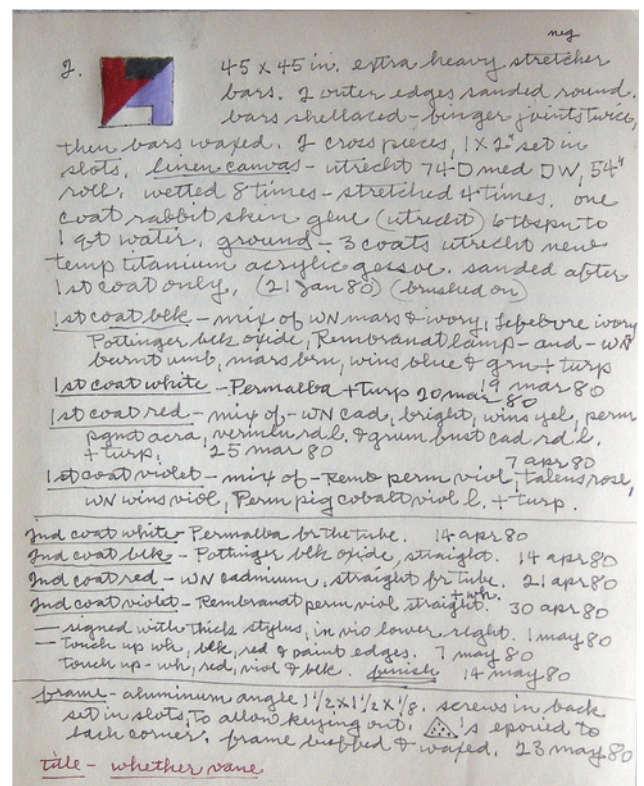 neg
2. 45 x 45 in. extra heavy stretcher
bars. 2 outer edges sanded round.
bars shellaced - binger joints twice,
then bars waxed. 2 cross pieces, 1 x 2" set in
slots. linen canvas - utrecht 74-D med DW, 54"
roll. wetted 8 times - stretched 4 times. one
coat rabbit skin glue (utrecht) 6 tbspn to
1 qt water. ground - 3 coats utrecht new
temp titanium acrylic gessoe. sanded after
1st coat only. (21 Jan 80) (brushed on)
1st coat blk - mix of WN mars & ivory, Lefebvre ivory
Pottinger blk oxide, Rembranat lamp - and - WN
burnt umb, mars brn, wins blue & grn + turp
19 mar 80
1st coat white - Permalba + Turp 20 mar 80
1st coat red - mix of - WN cad, bright, wins yel, perm
pgmt acra, rd l. & grum cad rd l.
+ turp. 25 mar 80
7 apr 80
1st coat violet - mix of - Remb perm viol, talens rose,
WN wins viol, Perm pig cobalt viol l. + turp.
2nd coat white - Permalba fr the tube. 14 apr 80
2nd coat blk - Pottinger blk oxide, straight. 14 apr 80
2nd coat red - WN cadmium, straight fr tube. 21 apr 80
2nd coat violet - Rembrandt perm viol straight. + wh. 30 apr 80
- signed with thick stylus, in vio lower right. 1 may 80
- Touch up wh, blk, red & paint edges. 7 may 80
touch up - wh, red, viol & blk. finish 14 may 80
frame - aluminum angle 1 1/2 x 1 1/2 x 1/8. screws in back
set in slots, To allow keying out. 's epoxied to
each corner. frame buffed & waxed. 23 may 80
title - whether vane